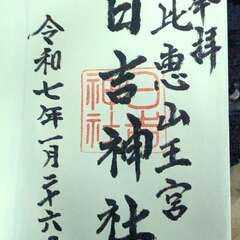 奉拝
比恵山王宮
日吉神社
日吉
神社
令和七年一月二十六日